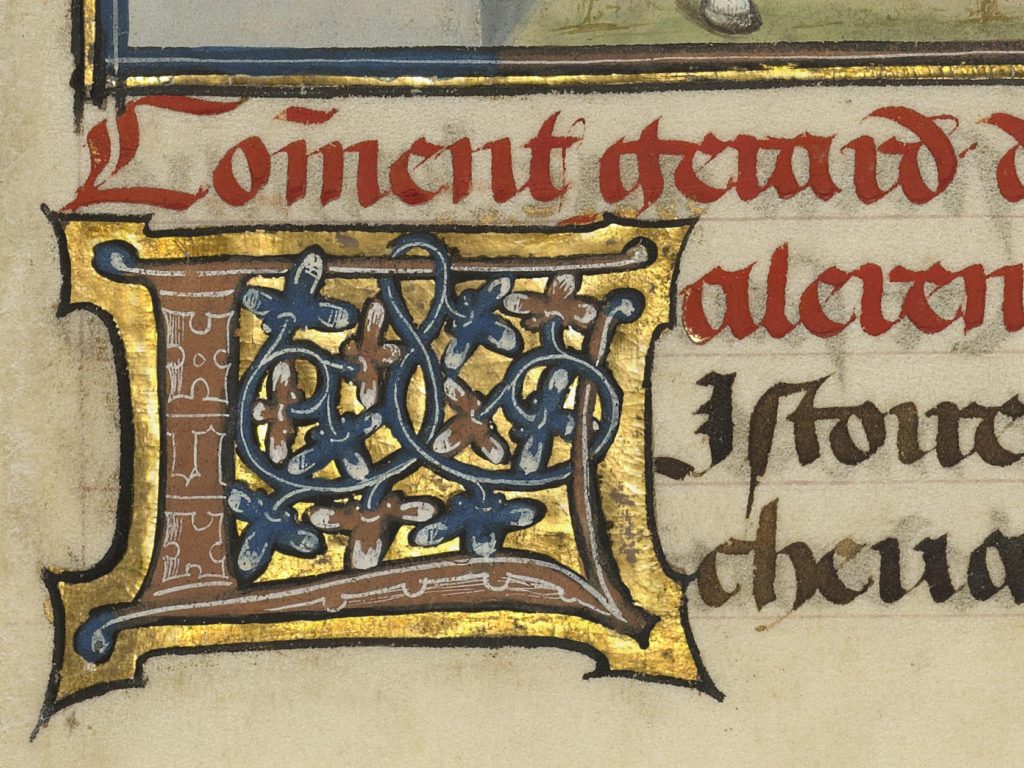 Com̄ent gerard d
aleren
LIstoire
cheua